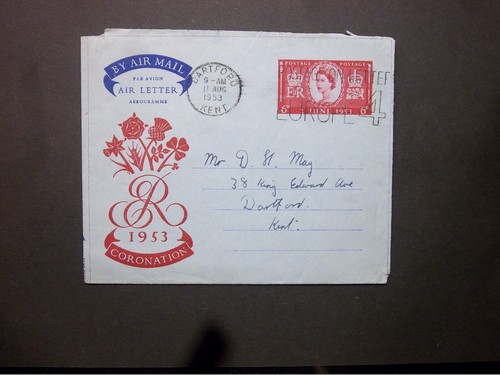 BY AIR MAIL
PAR AVION
AIR LETTER
AEROGRAMME
DARTFORD
9 - AM
11 AUG
1953
KENT
POSTAGE POSTAGE
E R
6D 6D
JUNE 1953
EUROPE 4
Mr D. St. May
38 King Edward Ave
Dartford.
Kent.
ER
1953
CORONATION